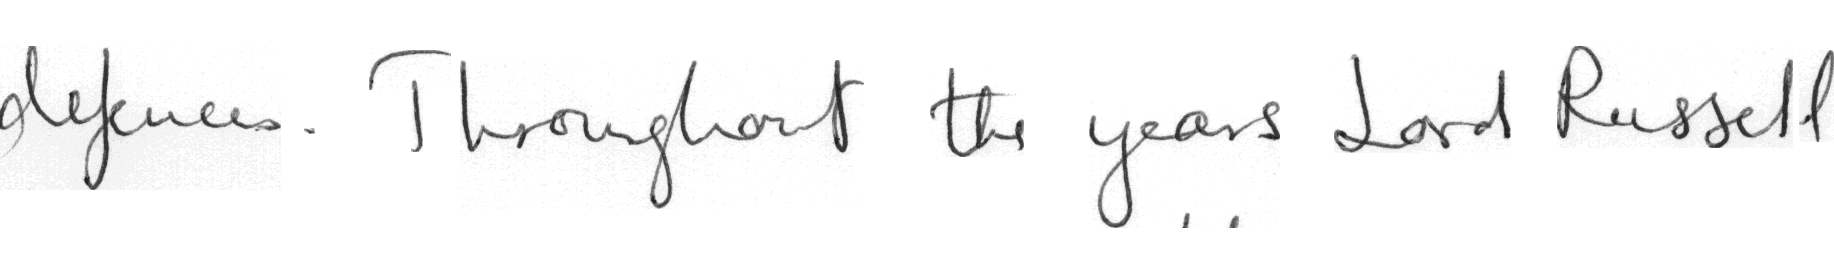 defences. Throughout the years Lord Russell